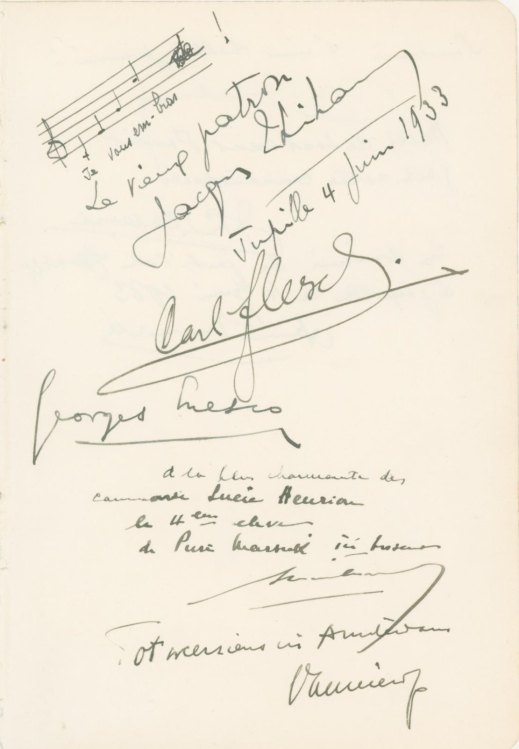 Je vous em-bras
Le vieux patron
Jacques Thibaud
Jupille 4 Juin 1933
Carl Flesch.
Georges Enesco
a la plus charmante des
camarade Lucie Henrion
le 4em eleve
de
Tot weerziens in Amsterdam